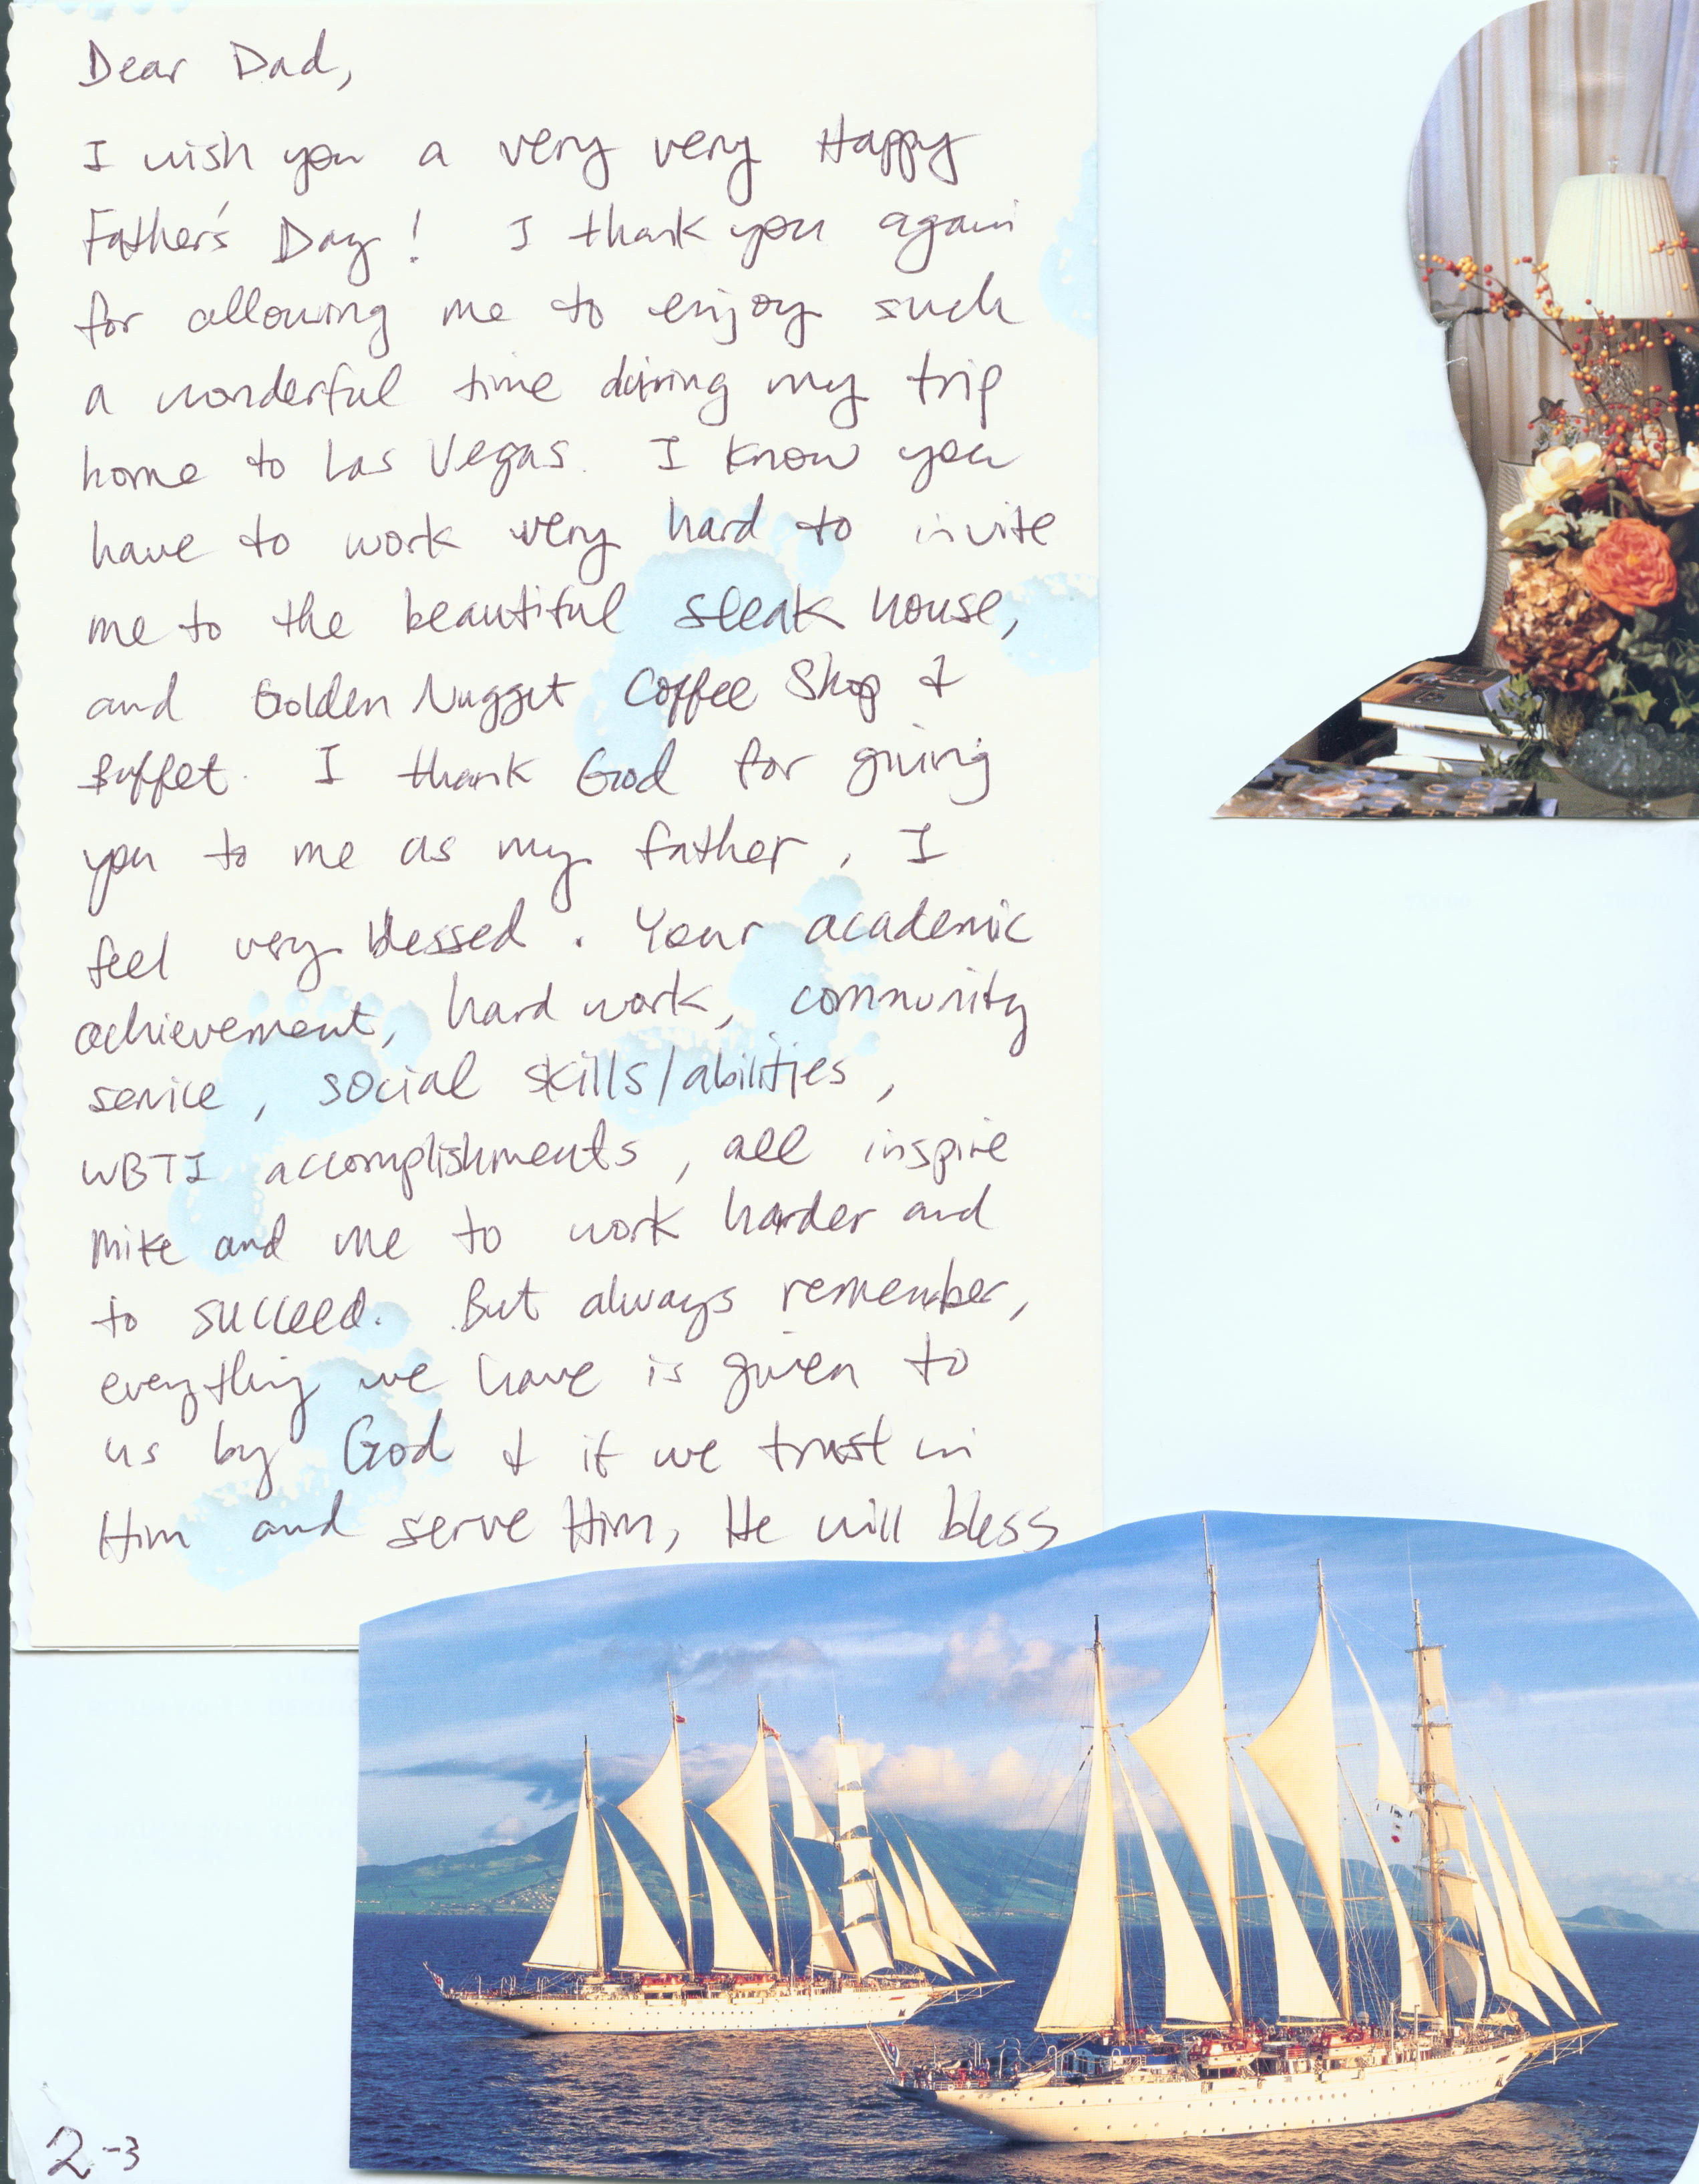 Dear Dad,
I wish you a very very Happy
Father's Day! I thank you again
for allowing me to enjoy such
a wonderful time during my trip
home to Las Vegas. I know you
have to work very hard to invite
me to the beautiful steak house,
and Golden Nugget Coffee Shop &
Buffet. I thank God for giving
you to me as my father, I
feel very blessed. Your academic
achievement, hard work, community
service, social skills/abilities,
WBTI accomplishments, all inspire
Mike and me to work harder and
to succeed. But always remember,
everything we have is given to
us by God & if we trust in
Him and serve Him, He will bless
2-3